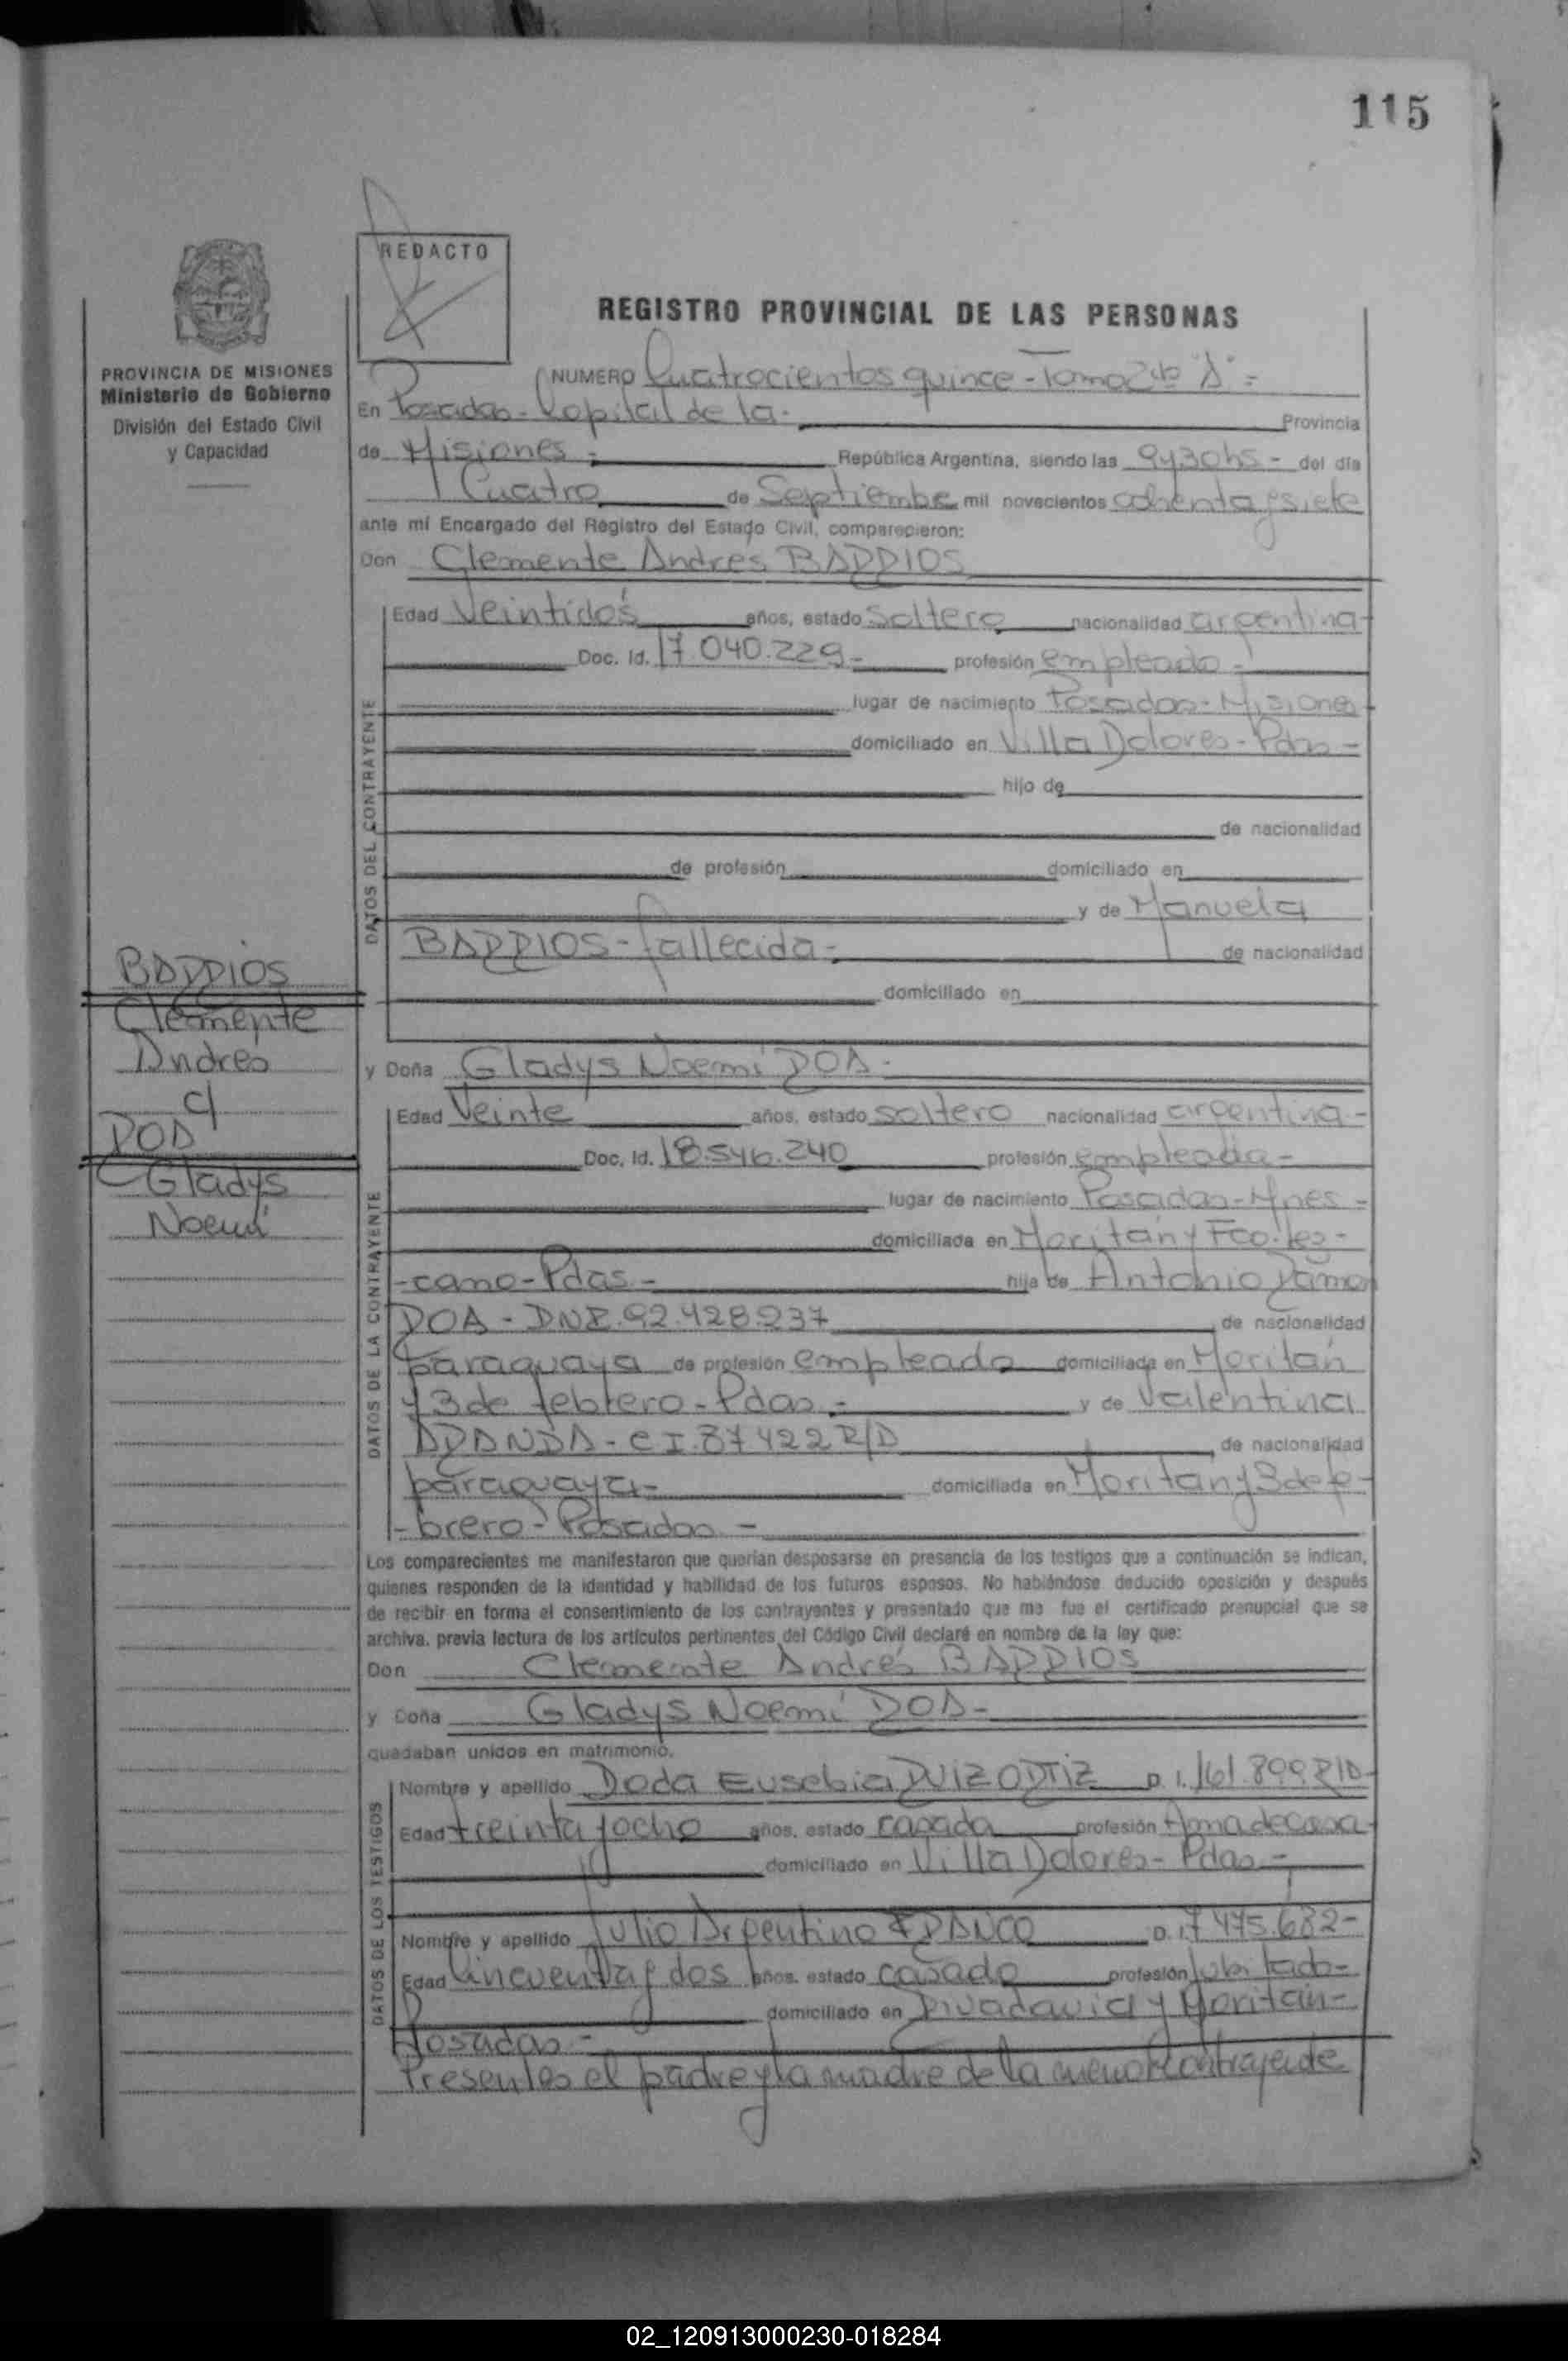 115
REDACTO
REGISTRO PROVINCIAL DE LAS PERSONAS
PROVINCIA DE MISIONES
Ministerio de Gobierno
División del Estado Civil
y Capacidad
NUMERO Cuatrocientos quince - Tomo 2do "A" =
En Posadas - Capital de la - Provincia
de Misiones - República Argentina, siendo las 9y30hs - del día
Cuatro de Septiembre mil novecientos ochenta y siete
ante mí Encargado del Registro del Estado Civil, comparecieron:
Don Clemente Andres BARRIOS
Edad Veintidós años, estado soltero nacionalidad argentina -
Doc. Id. 17.040.229 - profesión empleado -
lugar de nacimiento Posadas - Misiones
domiciliado en Villa Dolores - Pdas -
hijo de
de nacionalidad
de profesión domiciliado en
y de Manuela
BARRIOS - fallecida - de nacionalidad
domiciliado en
DATOS DEL CONTRAYENTE
BARRIOS
Clemente
Andrés
c/
ROA
Gladys
Noemí
y Doña Gladys Noemí ROA -
Edad Veinte años, estado soltero nacionalidad argentina -
Doc. Id. 18.546.240 profesión empleada -
lugar de nacimiento Posadas - Mnes -
domiciliada en Moritán y Fco. les -
- cano - Pdas - hija de Antonio Ramon
ROA - DNI. 92.428.237 de nacionalidad
paraguaya de profesión empleado domiciliada en Moritán
y 3 de febrero - Pdas - y de Valentina
ARANDA - C I. 87422 R/D de nacionalidad
paraguaya - domiciliada en Moritan y 3 de fe -
- brero - Posadas -
DATOS DE LA CONTRAYENTE
Los comparecientes me manifestaron que querían desposarse en presencia de los testigos que a continuación se indican,
quienes responden de la identidad y habilidad de los futuros esposos. No habiéndose deducido oposición y después
de recibir en forma el consentimiento de los contrayentes y presentado que me fue el certificado prenupcial que se
archiva, previa lectura de los artículos pertinentes del Código Civil declaré en nombre de la ley que:
Don Clemente Andrés BARRIOS
y Doña Gladys Noemí ROA -
quedaban unidos en matrimonio.
Nombre y apellido Roda Eusebia RUIZ ORTIZ D. I. 161.899 R/D -
Edad treinta y ocho años, estado casada profesión Ama de casa -
domiciliado en Villa Dolores - Pdas -
Nombre y apellido Julio Argentino FRANCO D. I. 7.475.682 -
Edad Cincuenta y dos años, estado casado profesión jubilado -
domiciliado en Rivadavia y Moritán -
Posadas -
DATOS DE LOS TESTIGOS
Presentes el padre y la madre de la menor contrayente
02_120913000230-018284